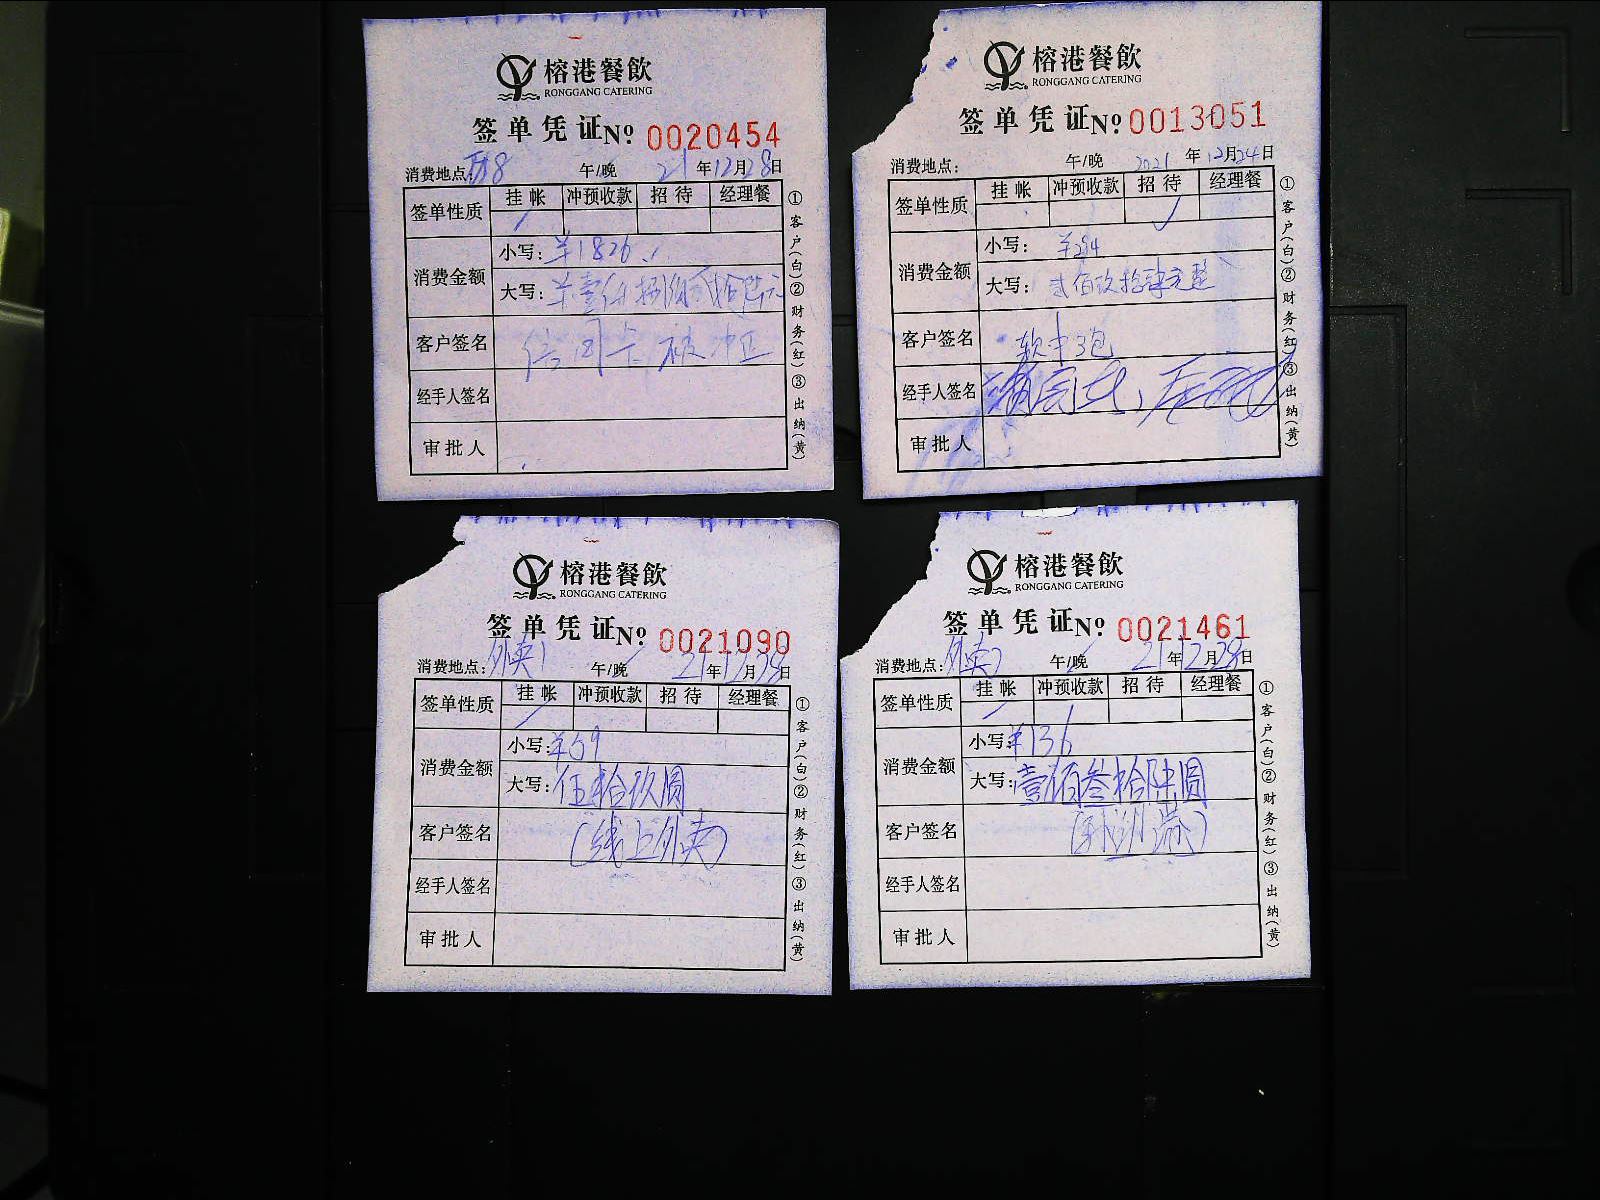 榕港餐飲
RONGGANG CATERING
签单凭证 Nº 0020454
消费地点: 8 午/晚 21年12月28日
签单性质 挂帐 冲预收款 招待 经理餐
消费金额 小写: ¥1826
大写: ¥壹仟捌佰贰拾陆元
客户签名 信用卡被冲正
经手人签名
审批人
①客户(白)②财务(红)③出纳(黄)
榕港餐飲
RONGGANG CATERING
签单凭证 Nº 0013051
消费地点: 午/晚 2021年12月24日
签单性质 挂帐 冲预收款 招待 经理餐
消费金额 小写: ¥294
大写: 贰佰玖拾肆元整
客户签名 软中3包
经手人签名
审批人
①客户(白)②财务(红)③出纳(黄)
榕港餐飲
RONGGANG CATERING
签单凭证 Nº 0021090
消费地点: 外卖1 午/晚 21年12月28日
签单性质 挂帐 冲预收款 招待 经理餐
消费金额 小写: ¥59
大写: 伍拾玖圆
客户签名 (线上外卖)
经手人签名
审批人
①客户(白)②财务(红)③出纳(黄)
榕港餐飲
RONGGANG CATERING
签单凭证 Nº 0021461
消费地点: 外卖2 午/晚 21年12月28日
签单性质 挂帐 冲预收款 招待 经理餐
消费金额 小写: ¥136
大写: 壹佰叁拾陆圆
客户签名
经手人签名
审批人
①客户(白)②财务(红)③出纳(黄)